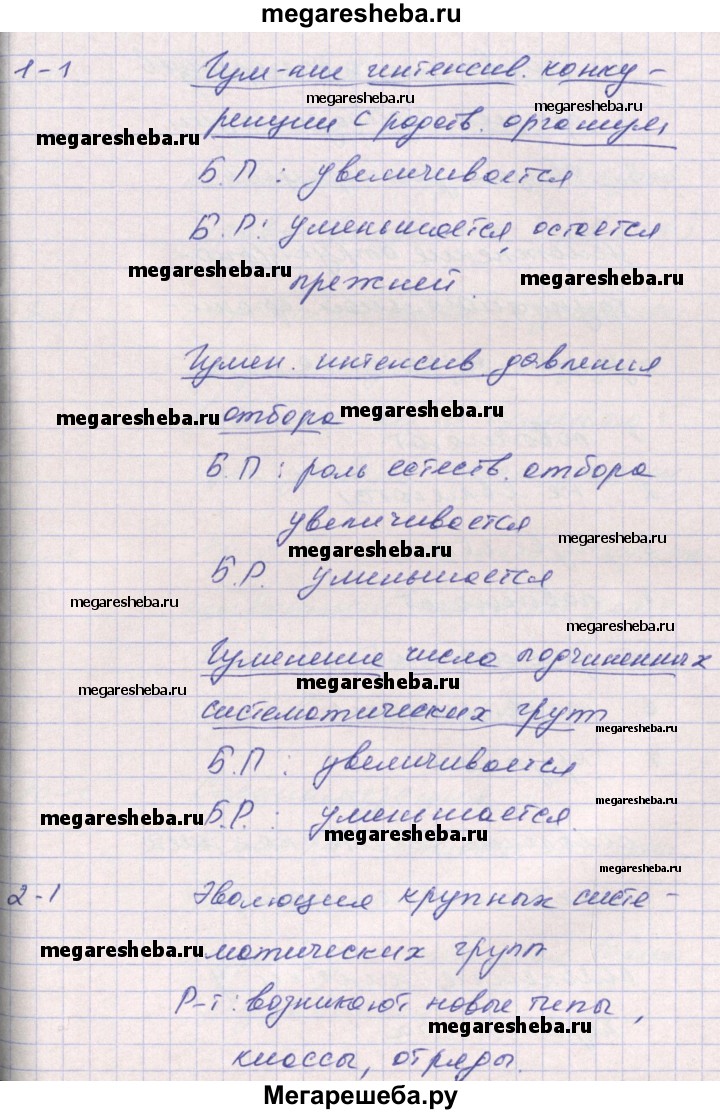 megaresheba.ru
1-1 Изм-ние интенсив. конку-
megaresheba.ru
megaresheba.ru
megaresheba.ru
ренции с родств. организм
Б.П: увеличивается
Б.Р: уменьшается, остается
megaresheba.ru
megaresheba.ru
прежней.
Измен. интенсив. давления
megaresheba.ru
отбора
megaresheba.ru
Б.П: роль естеств. отбора
увеличивается
megaresheba.ru
megaresheba.ru
Б.Р. уменьшается
megaresheba.ru
megaresheba.ru
Изменение числа подчиненных
megaresheba.ru
megaresheba.ru
систематических групп
megaresheba.ru
Б.П: увеличивается
megaresheba.ru
megaresheba.ru
Б.Р.: уменьшается.
megaresheba.ru
megaresheba.ru
2-1 Эволюция крупных систе-
megaresheba.ru
матических групп
Р-т: возникают новые типы,
megaresheba.ru
классы, отряды.
Мегарешеба.ру